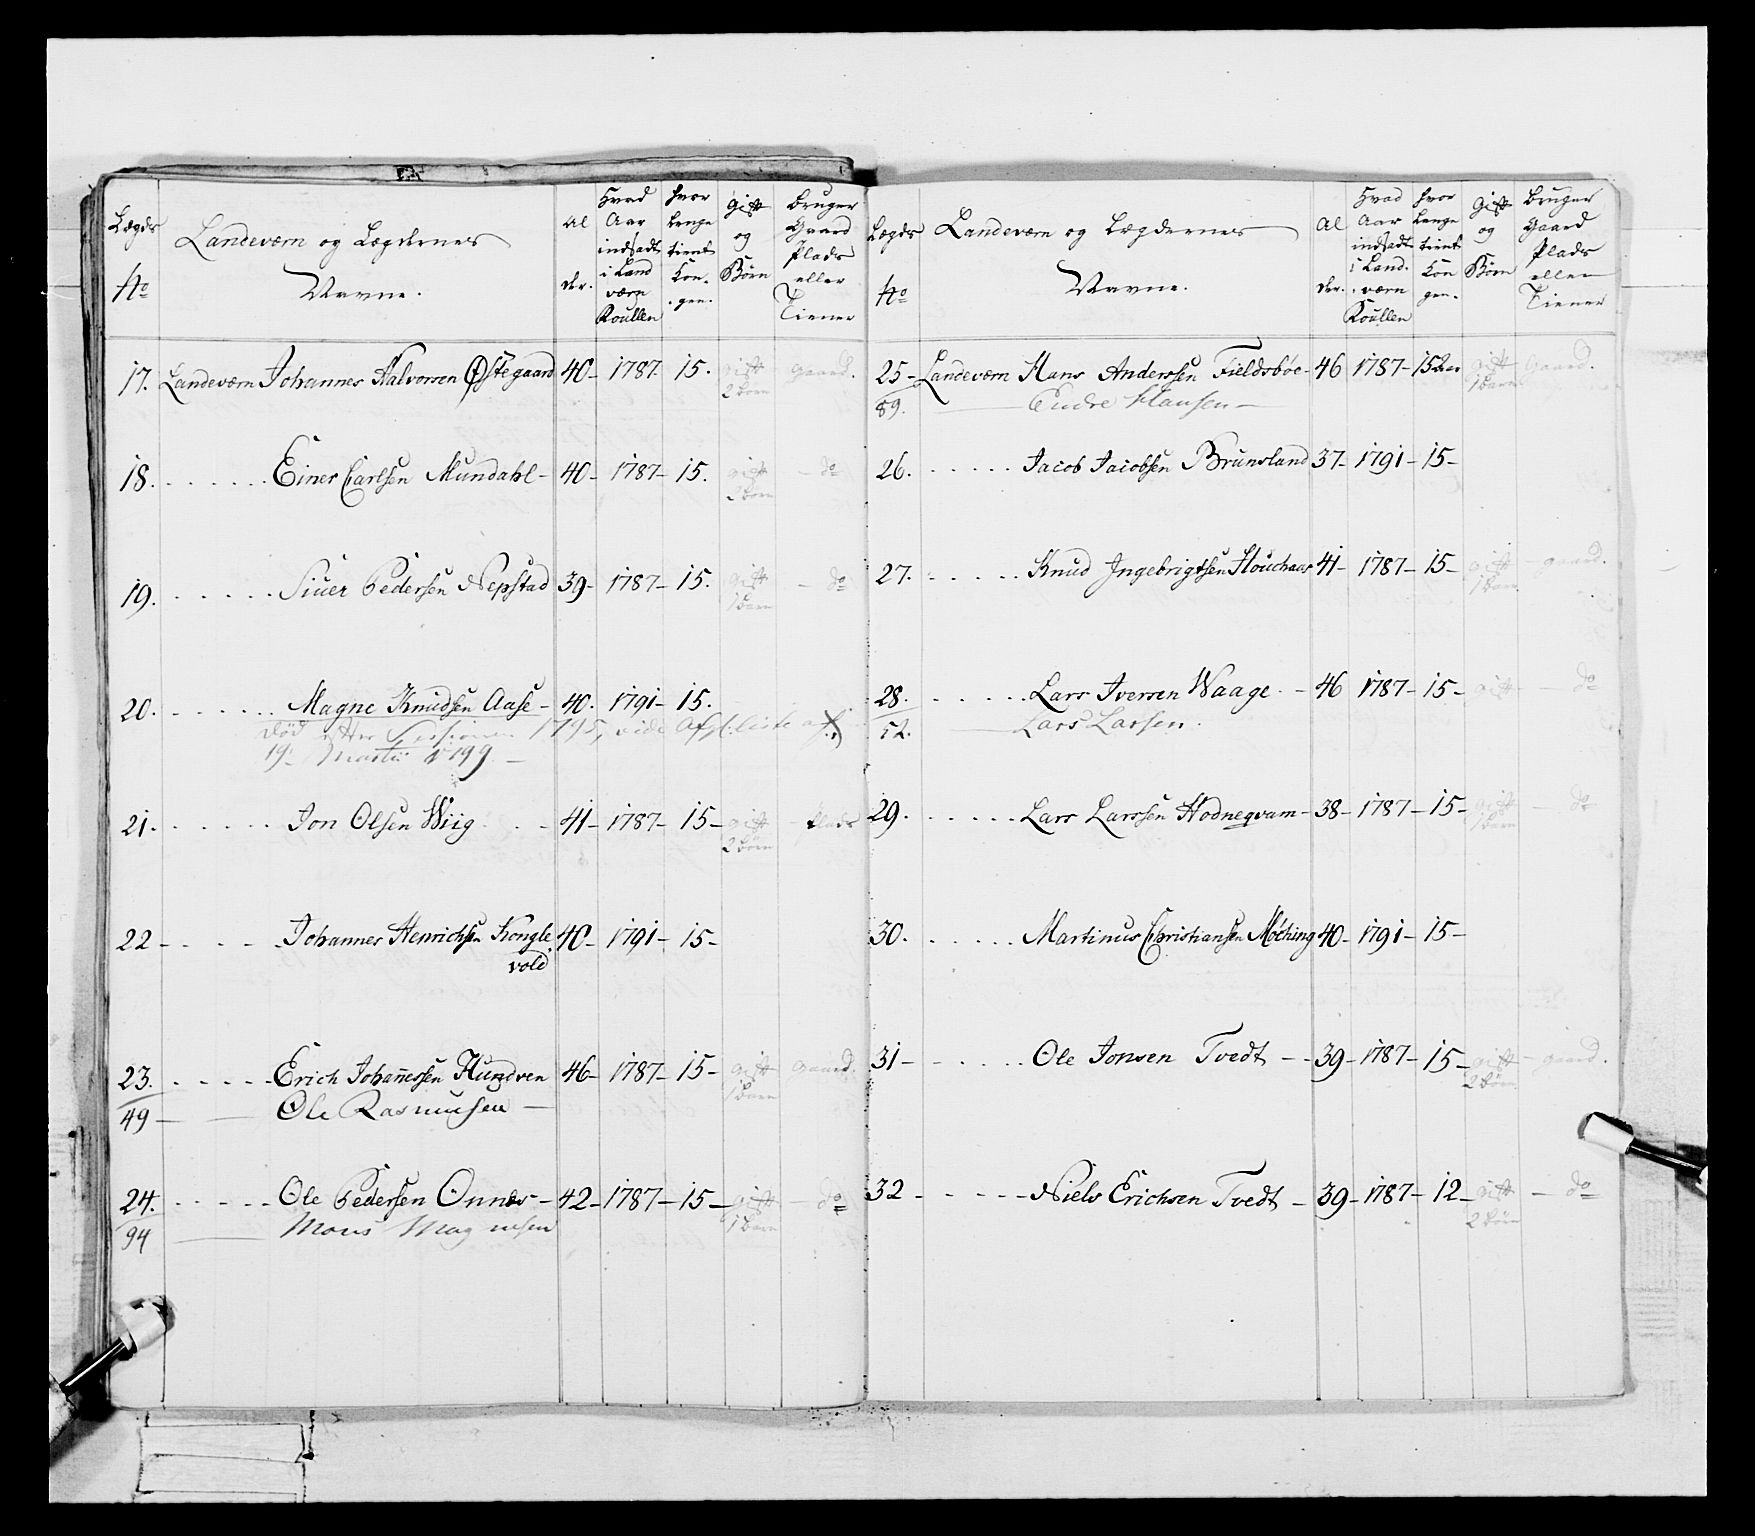 Lægds No
Landeværn og Lægdernes Navne.
Al der.
Hvad Aar indsadt i Land værn Roullen
hvor lenge tient Kon- gen.
Gift og Børn
bruger Gaard Plads eller Tiener
17. Landeværn Johannes Halvorsen Østegaard 40- 1787- 15. gift 2 børn gaard.
18. Einer Carlsen Mundahl- 40- 1787- 15. gift 2 børn - do
19. Siuer Pedersen Nepstad 39- 1787- 15. gift 1 barn - do
20. Magne Knudsen Aase- 40. 1791- 15.
død efter Sessionen 1795, vide Afsk: liste af
19. Martii 1799
21. Jon Olsen Wiig - 41- 1787- 15- gift 2 børn - plads
22- Johannes Henrichsen Kongle 40- 1791- 15-
vold
23. Erich Johannessen Hundven 46- 1787- 15- gift 1 barn gaard.
49- Ole Rasmusen-
24. Ole Pedersen Onnes- 42- 1787- 15- gift 1 barn - do
94 Mons Magnusen
Lægds No
Landeværn og Lægdernes Navne.
Al der.
Hvad Aar indsadt i Land. værn Roullen
hvor lenge tient Kon gen.
Gift og Børn
bruger Gaard Plads eller Tiener
25- Landeværn Hans Anderssen Fieldsbøe- 46 1787- 15 Aar gift 1 barn Gaard.
89. Endre Hansen-
26. Jacob Jacobsen Brunsland 37- 1791- 15-
27. Knud Ingebrigtsen Houchaas 41- 1787- 15- gift 1 barn - gaard.
28. Lars Iversen Waage.- 46 1787- 15- gift - do
52. Lars Larsen.
29. Lars Larssen Hodneqvam- 38- 1787- 15- gift 1 barn - do
30. Martinus Christiansen Møching 40- 1791- 15-
31- Ole Jonsen Tvedt-- 39- 1787- 15- gift 2 børn - gaard.
32- Niels Erichsen Tvedt- 39- 1787- 12- gift 2 børn - do